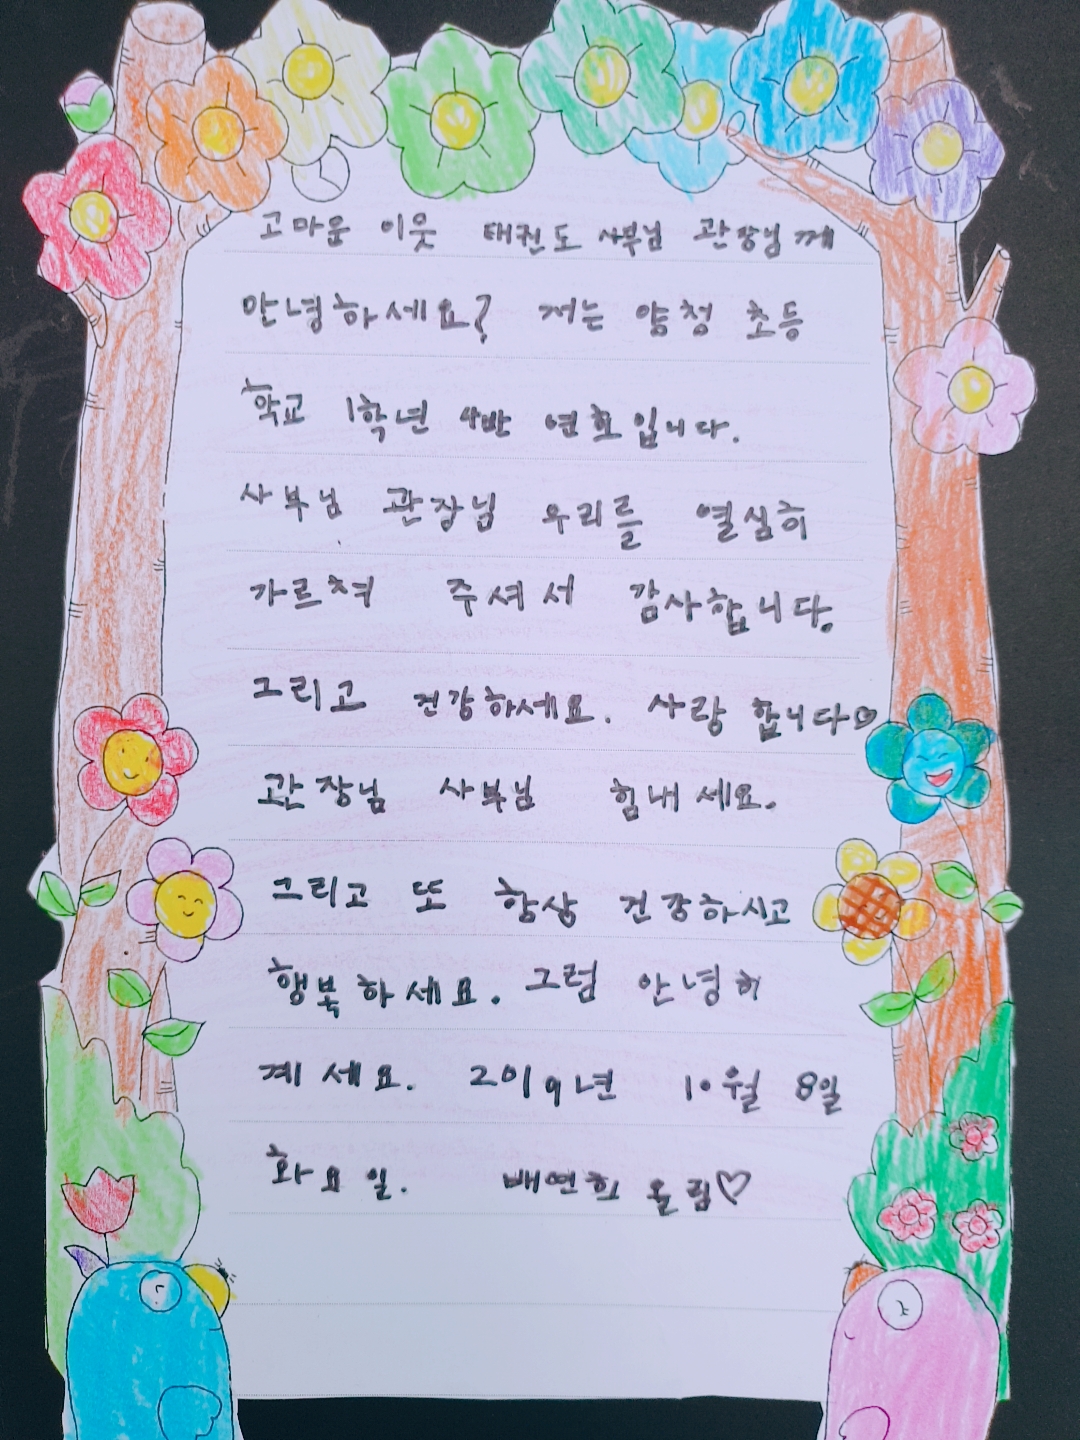 고마운 이웃 태권도 사부님 관장님께
안녕하세요? 저는 양청 초등
학교 1학년 4반 연희입니다.
사부님 관장님 우리를 열심히
가르쳐 주셔서 감사합니다.
그리고 건강하세요. 사랑 합니다♡
관장님 사부님 힘내세요.
그리고 또 항상 건강하시고
행복하세요. 그럼 안녕히
계세요. 2019년 10월 8일
화요일. 배연희 올림♡